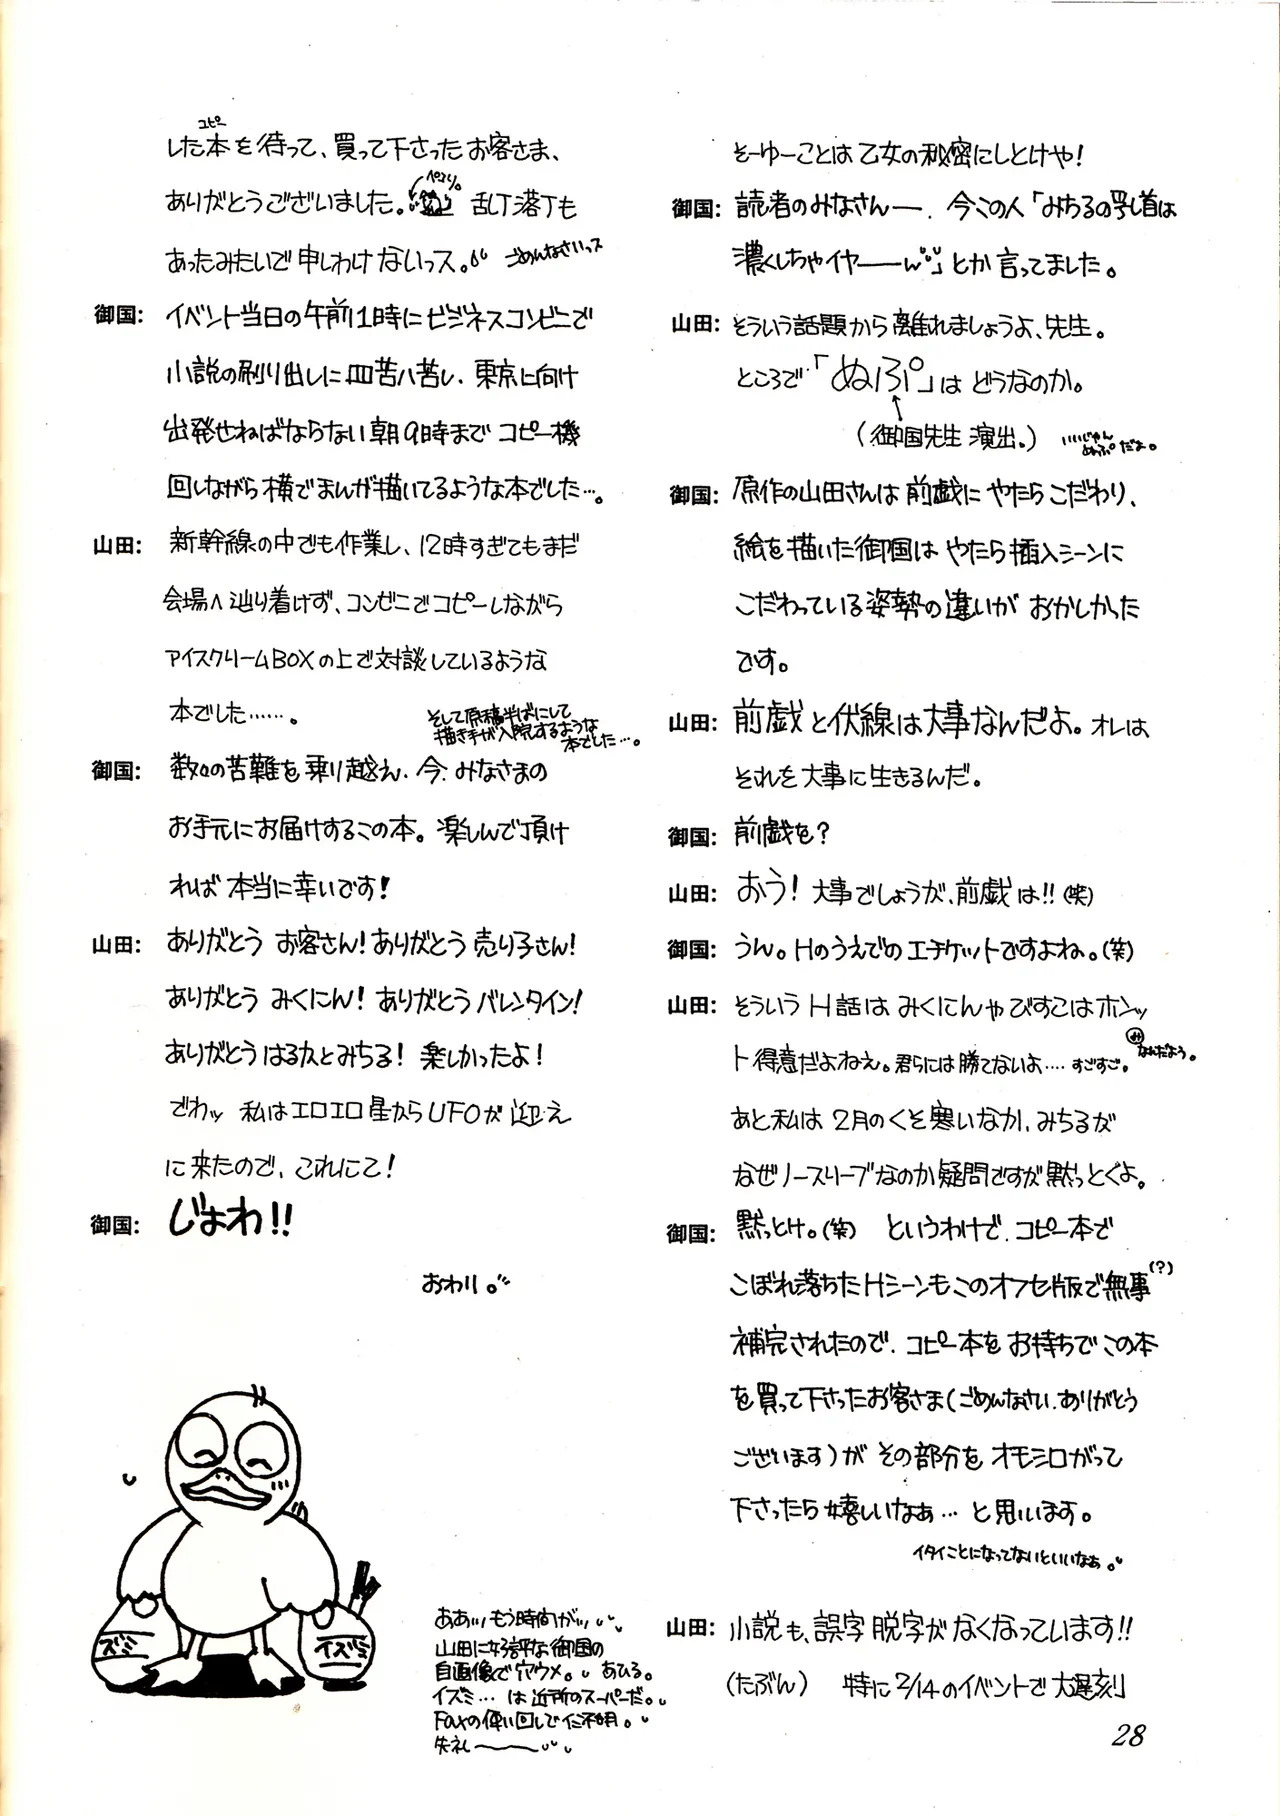 そーゆーことは乙女の秘密にしとけや!
御国: 読者のみなさんー、今この人「みちるの乳首は
濃くしちゃイヤーーん」とか言ってました。
山田: そういう話題から離れましょうよ、先生。
ところで「ぬぷ」はどうなのか。
(御国先生演出。) いいじゃん
ぬぷだよ。
御国: 原作の山田さんは前戯にやたらこだわり、
絵を描いた御国はやたら挿入シーンに
こだわっている姿勢の違いがおかしかった
です。
山田: 前戯と伏線は大事なんだよ。オレは
それを大事に生きるんだ。
御国: 前戯を?
山田: おう!大事でしょうが、前戯は!!(笑)
御国: うん。Hのうえでのエチケットですよね。(笑)
山田: そういうH話はみくにんやびすこはホンッ
ト得意だよねえ。君らには勝てないよ‥‥すごすご。
み なんだよう。
あと私は2月のくそ寒いなか、みちるが
なぜノースリーブなのか疑問ですが黙っとくよ。
御国: 黙っとけ。(笑) というわけで、コピー本で
こぼれ落ちたHシーンもこのオフセ版で無事(?)
補完されたので、コピー本をお持ちでこの本
を買って下さったお客さま(ごめんなさい、ありがとう
ございます)がその部分をオモシロがって
下さったら嬉しいなぁ…と思います。
イタイことになってないといいなぁ。
山田: 小説も、誤字脱字がなくなっています!!
(たぶん) 特に2/14のイベントで大遅刻
コピー
した本を待って、買って下さったお客さま、
ありがとうございました。ペコリ。乱丁落丁も
あったみたいで申しわけないっス。ごめんなさいっス
御国: イベント当日の午前1時にビジネスコンビニで
小説の刷り出しに四苦八苦し、東京に向け
出発せねばならない朝9時までコピー機
回しながら横でまんが描いてるような本でした…。
山田: 新幹線の中でも作業し、12時すぎてもまだ
会場へ辿り着けず、コンビニでコピーしながら
アイスクリームBOXの上で対談しているような
本でした……。
そして原稿半ばにして
描き手が入院するような
本でした…。
御国: 数々の苦難を乗り越え、今、みなさまの
お手元にお届けするこの本。楽しんで頂け
れば本当に幸いです!
山田: ありがとうお客さん!ありがとう売り子さん!
ありがとうみくにん!ありがとうバレンタイン!
ありがとうはるかとみちる!楽しかったよ!
でわッ 私はエロエロ星からUFOが迎え
に来たので、これにて!
御国: じょわ!!
おわり。
イズミ
イズミ
ああ、もう時間が、
山田に好評な御国の
自画像で穴ウメ。あひる。
イズミ…は近所のスーパーだ。
Faxの使い回しで仁不明。
失礼ーーー
28